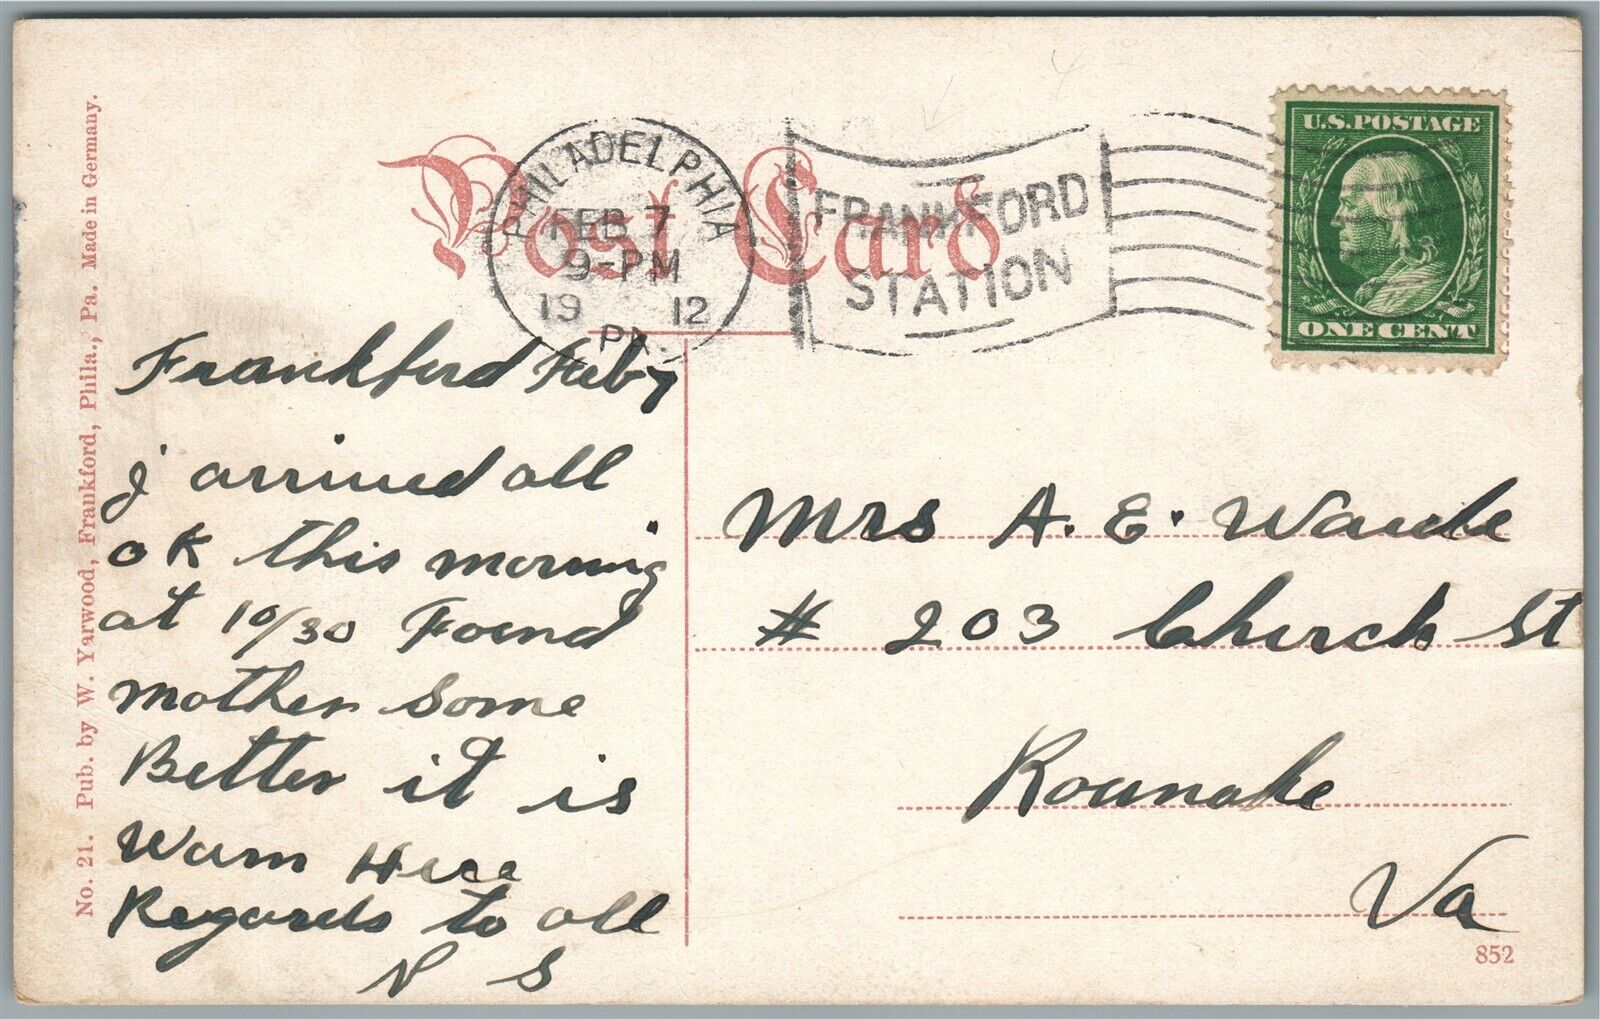 Post Card
PHILADELPHIA
FEB 7
9-PM
19 12
PA.
FRANKFORD
STATION
U.S. POSTAGE
ONE CENT
No. 21. Pub. by W. Yarwood, Frankford, Phila., Pa. Made in Germany.
Frankford Feby 7
I arrived all
OK this morning
at 10/30 Found
mother some
Better it is
Warm Here
Regards to all
N S
Mrs A. E. Waide
# 203 Church St
Roanoke
Va
852